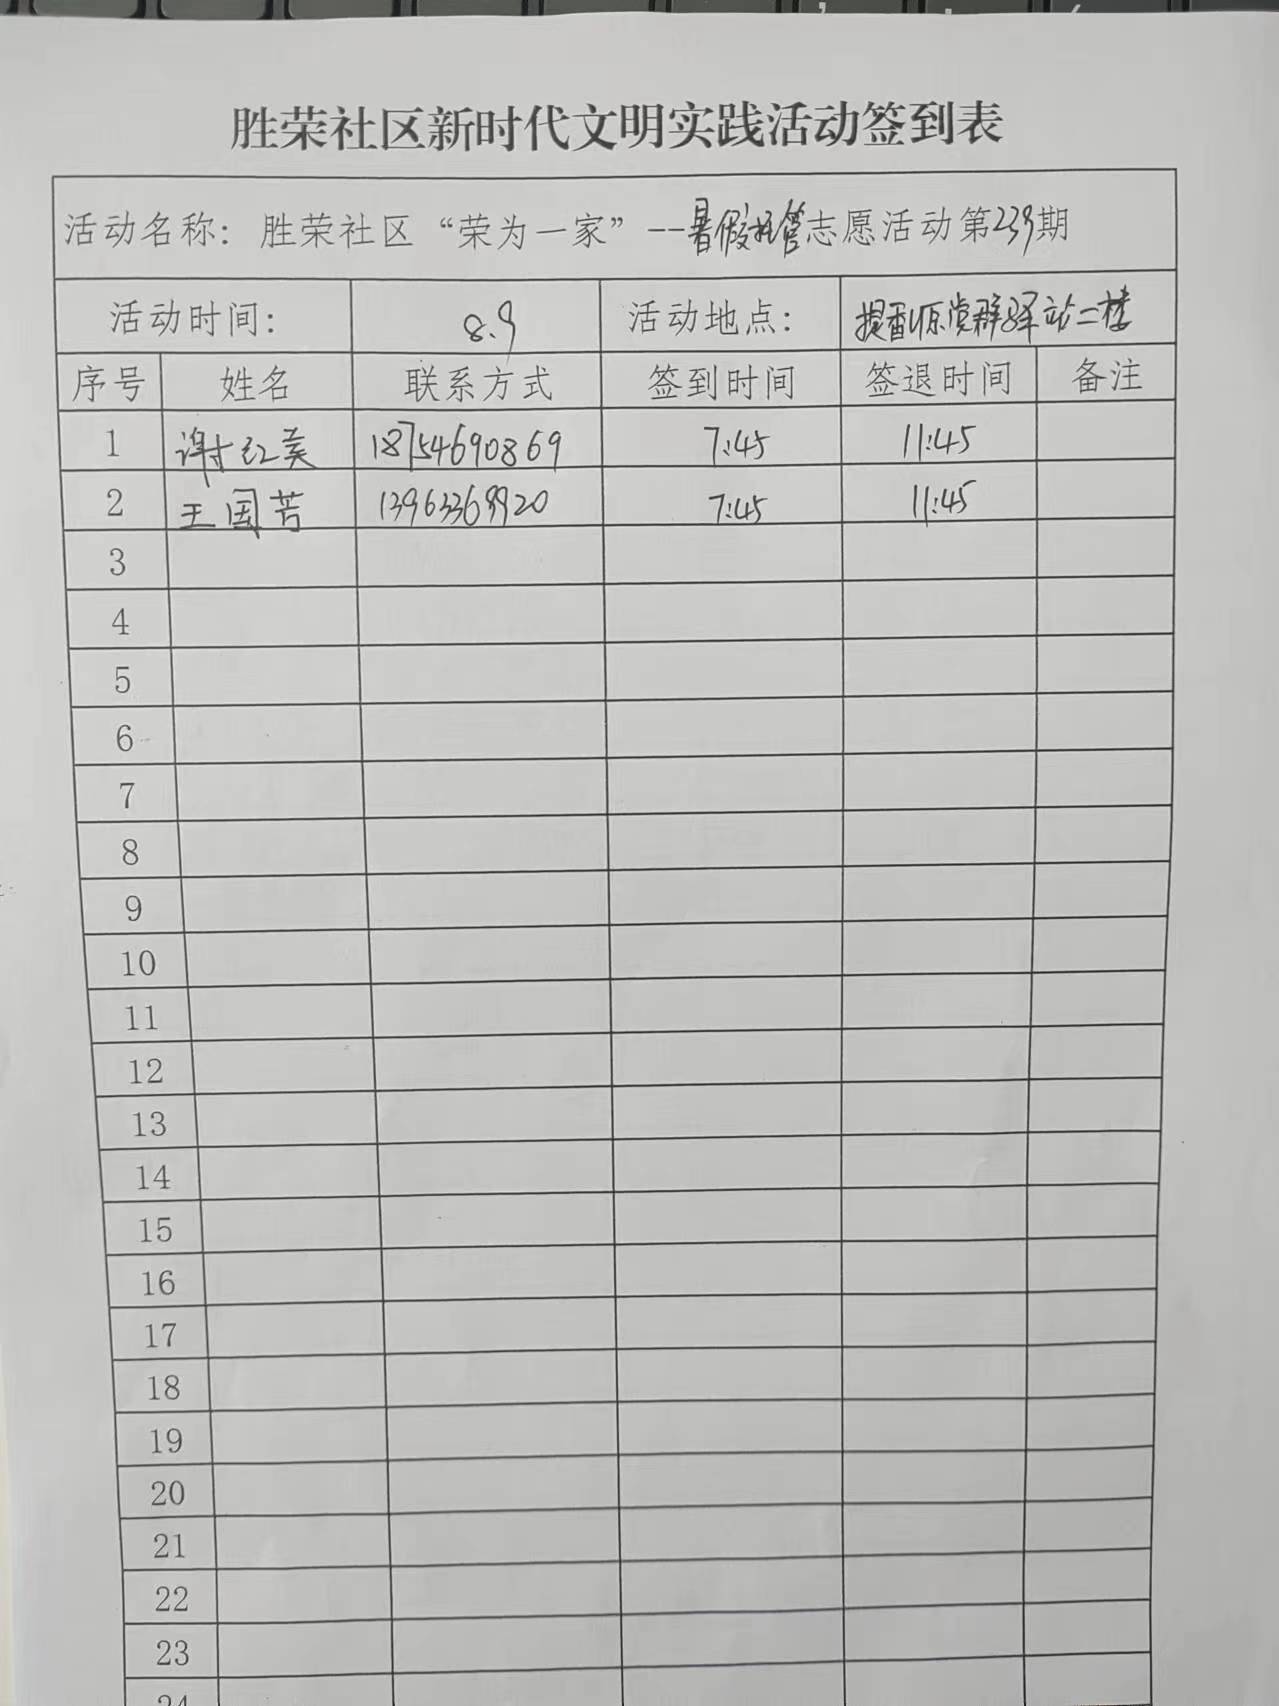 胜荣社区新时代文明实践活动签到表
活动名称：胜荣社区“荣为一家”--暑假托管志愿活动第239期
活动时间： 8.9 活动地点： 提香源党群驿站二楼
序号 姓名 联系方式 签到时间 签退时间 备注
1 谢红英 18754690869 7:45 11:45
2 王国芳 7:45 11:45
3
4
5
6
7
8
9
10
11
12
13
14
15
16
17
18
19
20
21
22
23
24